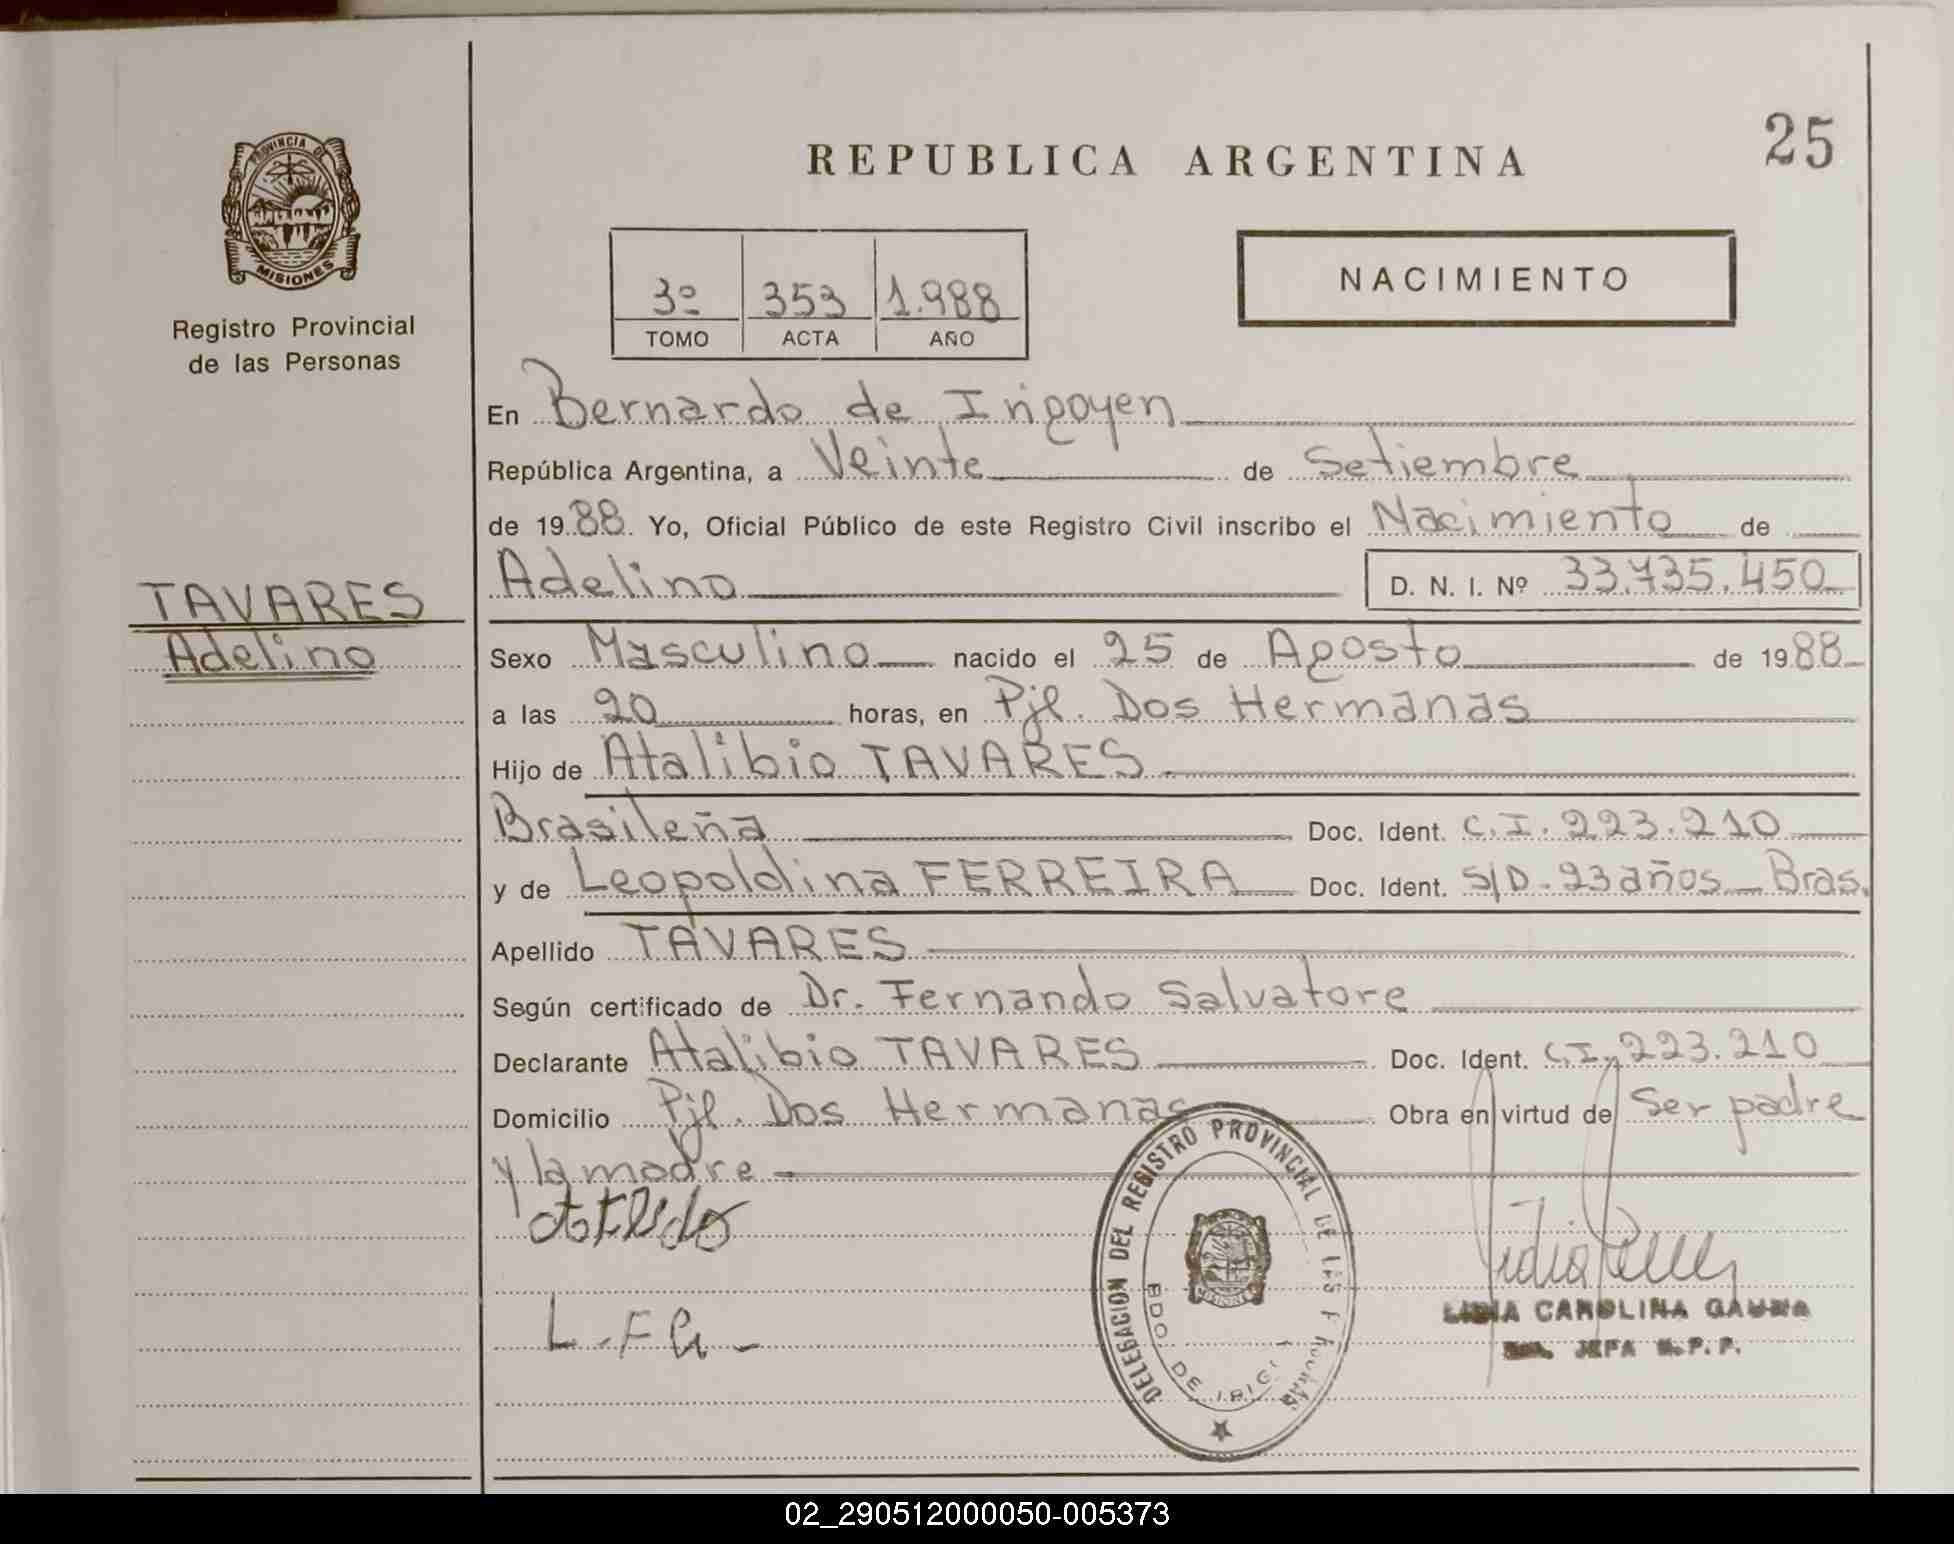 25
REPUBLICA ARGENTINA
PROVINCIA DE
MISIONES
Registro Provincial
de las Personas
NACIMIENTO
3º 353 1.988
TOMO ACTA AÑO
En Bernardo de Irigoyen
República Argentina, a Veinte de Setiembre
de 1988. Yo, Oficial Público de este Registro Civil inscribo el Nacimiento de
Adelino D. N. I. Nº 33.735.450
TAVARES
Adelino
Sexo Masculino nacido el 25 de Agosto de 1988
a las 20 horas, en Pjl. Dos Hermanas
Hijo de Atalibio TAVARES.
Brasileña Doc. Ident. C.I. 223.210
y de Leopoldina FERREIRA Doc. Ident. S/D. 23 años Bras.
Apellido TAVARES
Según certificado de Dr. Fernando Salvatore
Declarante Atalibio TAVARES Doc. Ident. C.I. 223.210
Domicilio Pjl. Dos Hermanas Obra en virtud de Ser padre
y la madre
DELEGACION DEL REGISTRO PROVINCIAL DE LAS
BDO. DE IRIG
L.F
LIDIA CAROLINA
JEFA R.P.P.
02_290512000050-005373